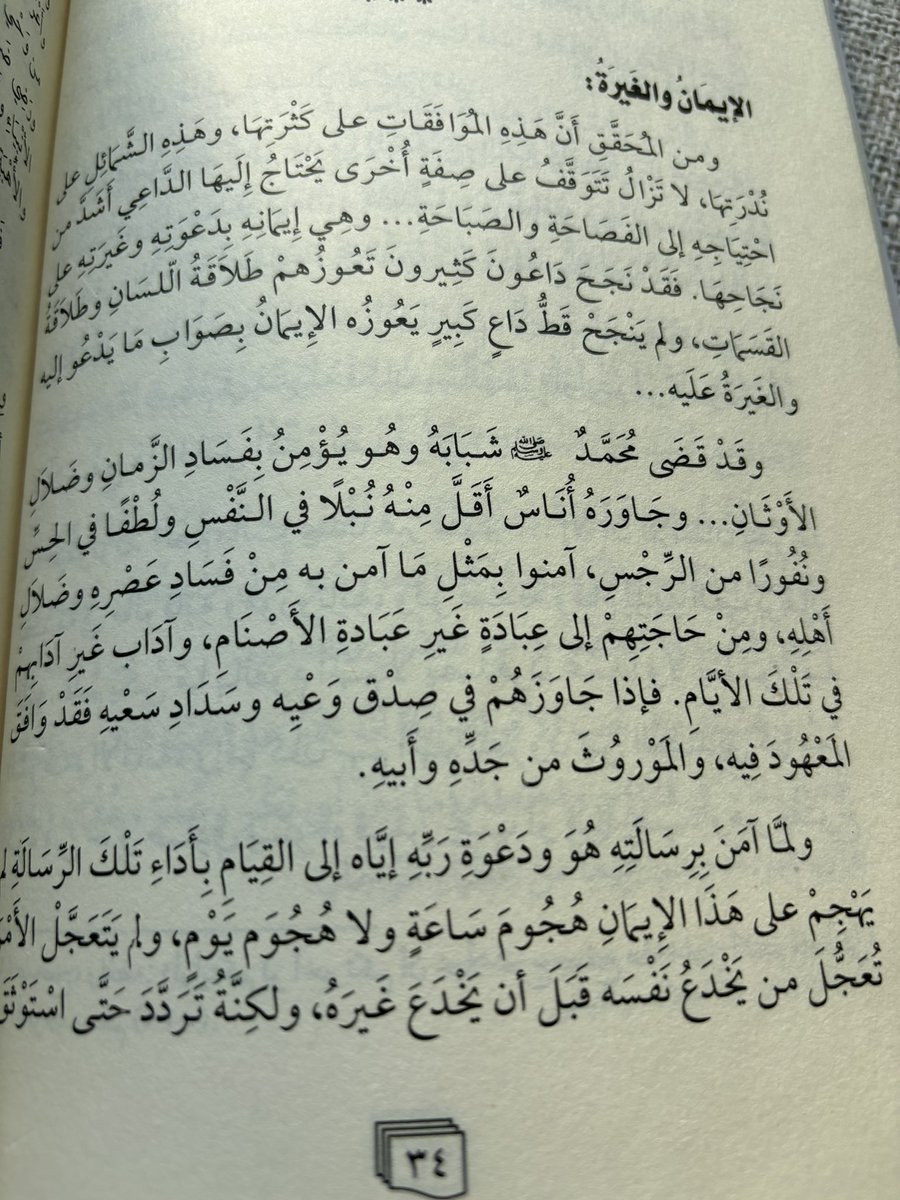 الإِيمَانُ والغَيرَةُ:
ومن المُحَقَّقِ أَنَّ هَذِهِ المُوَافَقَاتِ على كَثْرَتِهَا، وهَذِهِ الشَّمَائِلِ على
نُدْرَتِهَا، لا تَزَالُ تَتَوَقَّفُ على صِفَةٍ أُخْرَى يَحْتَاجُ إِلَيهَا الدَّاعِي أَشَدَّ من
احْتِيَاجِهِ إلى الفَصَاحَةِ والصَبَاحَةِ... وهِي إِيمَانِهِ بِدَعْوَتِهِ وغَيرَتِهِ على
نَجَاحِهَا. فَقَدْ نَجَحَ دَاعُونَ كَثِيرونَ تَعُوزُهمْ طَلَاقَةُ الّلسَانِ وطَلَاقَةُ
القَسَمَاتِ، ولم يَنْجَحْ قَطُّ دَاعٍ كَبِيرٍ يَعُوزُه الإِيمَانُ بِصَوَابِ مَا يَدْعُو إليه
والغَيرَةُ عَلَيه...
وقَدْ قَضَى مُحَمَّدٌ ﷺ شَبَابَهُ وهُو يُؤْمِنُ بِفَسَادِ الزَّمانِ وضَلالِ
الأَوْثَانِ... وجَاوَرَهُ أُنَاسٌ أَقَلَّ مِنْهُ نُبْلًا في النَّفْسِ ولُطْفًا في الحِسِّ
ونُفُورًا من الرِّجْسِ، آمنوا بِمَثْلِ مَا آمن به مِنْ فَسَادِ عَصْرِهِ وضَلالِ
أَهْلِهِ، ومِنْ حَاجَتِهِمْ إلى عِبَادَةٍ غَيرِ عَبَادةِ الأَصْنَامِ، وآدَاب غَيرِ آدَابِهِمْ
في تَلْكَ الأيَّامِ. فإذا جَاوَزَهُمْ في صِدْق وَعْيِه وسَدَادِ سَعْيِهِ فَقَدْ وَافَقَ
المَعْهُودَ فِيه، والمَوْرُوثَ من جَدِّهِ وأَبيهِ.
ولمَّا آمَنَ بِرِسَالَتِهِ هُوَ ودَعْوَةِ رَبِّهِ إيَّاه إلى القِيَامِ بِأَدَاءِ تَلْكَ الرِّسَالَةِ
يَهْجِمْ على هَذَا الإِيمَانِ هُجُومَ سَاعَةٍ ولا هُجُوَم يَوْمٍ، ولم يَتَعَجَّلْ الأَمْرَ
تُعَجُّلَ من يَخْدَعُ نَفْسَه قَبَلَ أن يَخْدَعَ غَيرَهُ، ولكِنَّهُ تَرَدَّدَ حَتَّى اسْتَوْثَقَ
٣٤